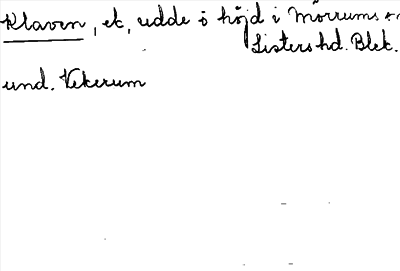 Klaven, et, udde o höjd i Mörrums sn
Listers hd. Blek.
und. Vekerum